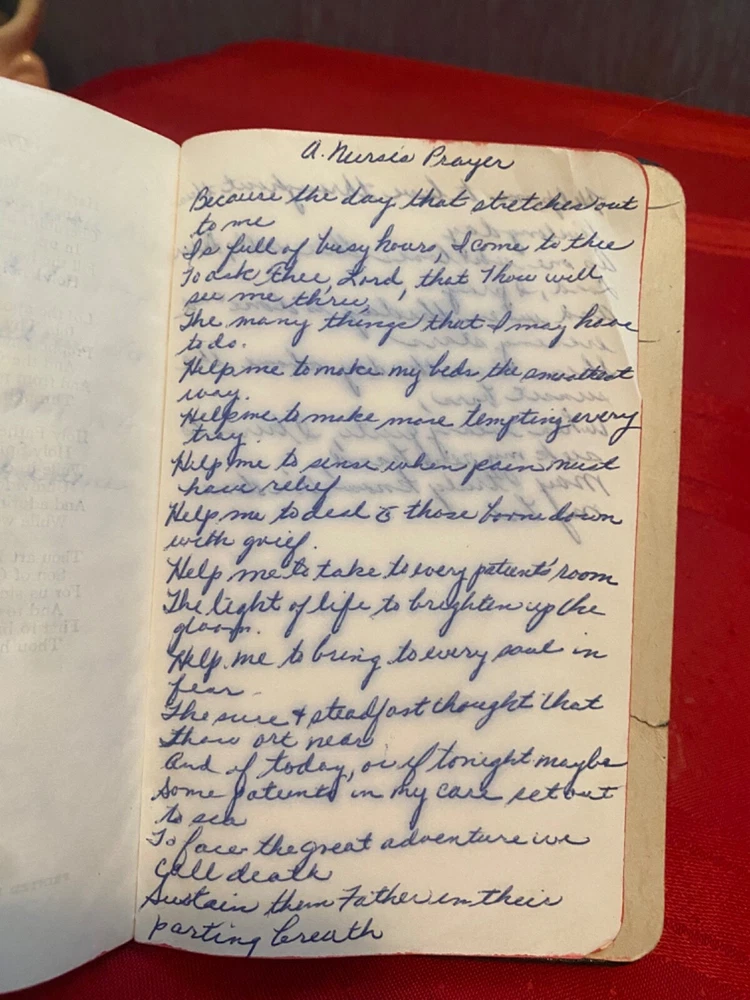 A. Nurse's Prayer
Because the day that stretches out
to me
Is full of busy hours, I come to thee
To ask Thee, Lord, that Thou will
see me thru,
The many things that I may have
to do.
Help me to make my beds the smoothest
way.
Help me to make more tempting every
tray.
Help me to sense when pain must
have relief
Help me to deal to those borne down
with grief.
Help me to take to every patient's room
The light of life to brighten up the
gloom.
Help me to bring to every soul in
fear
The sure & steadfast thought that
thou art near
And if today, or if tonight maybe
Some patients in my care set out
to sea
To face the great adventure we
call death
Sustain them Father in their
parting breath